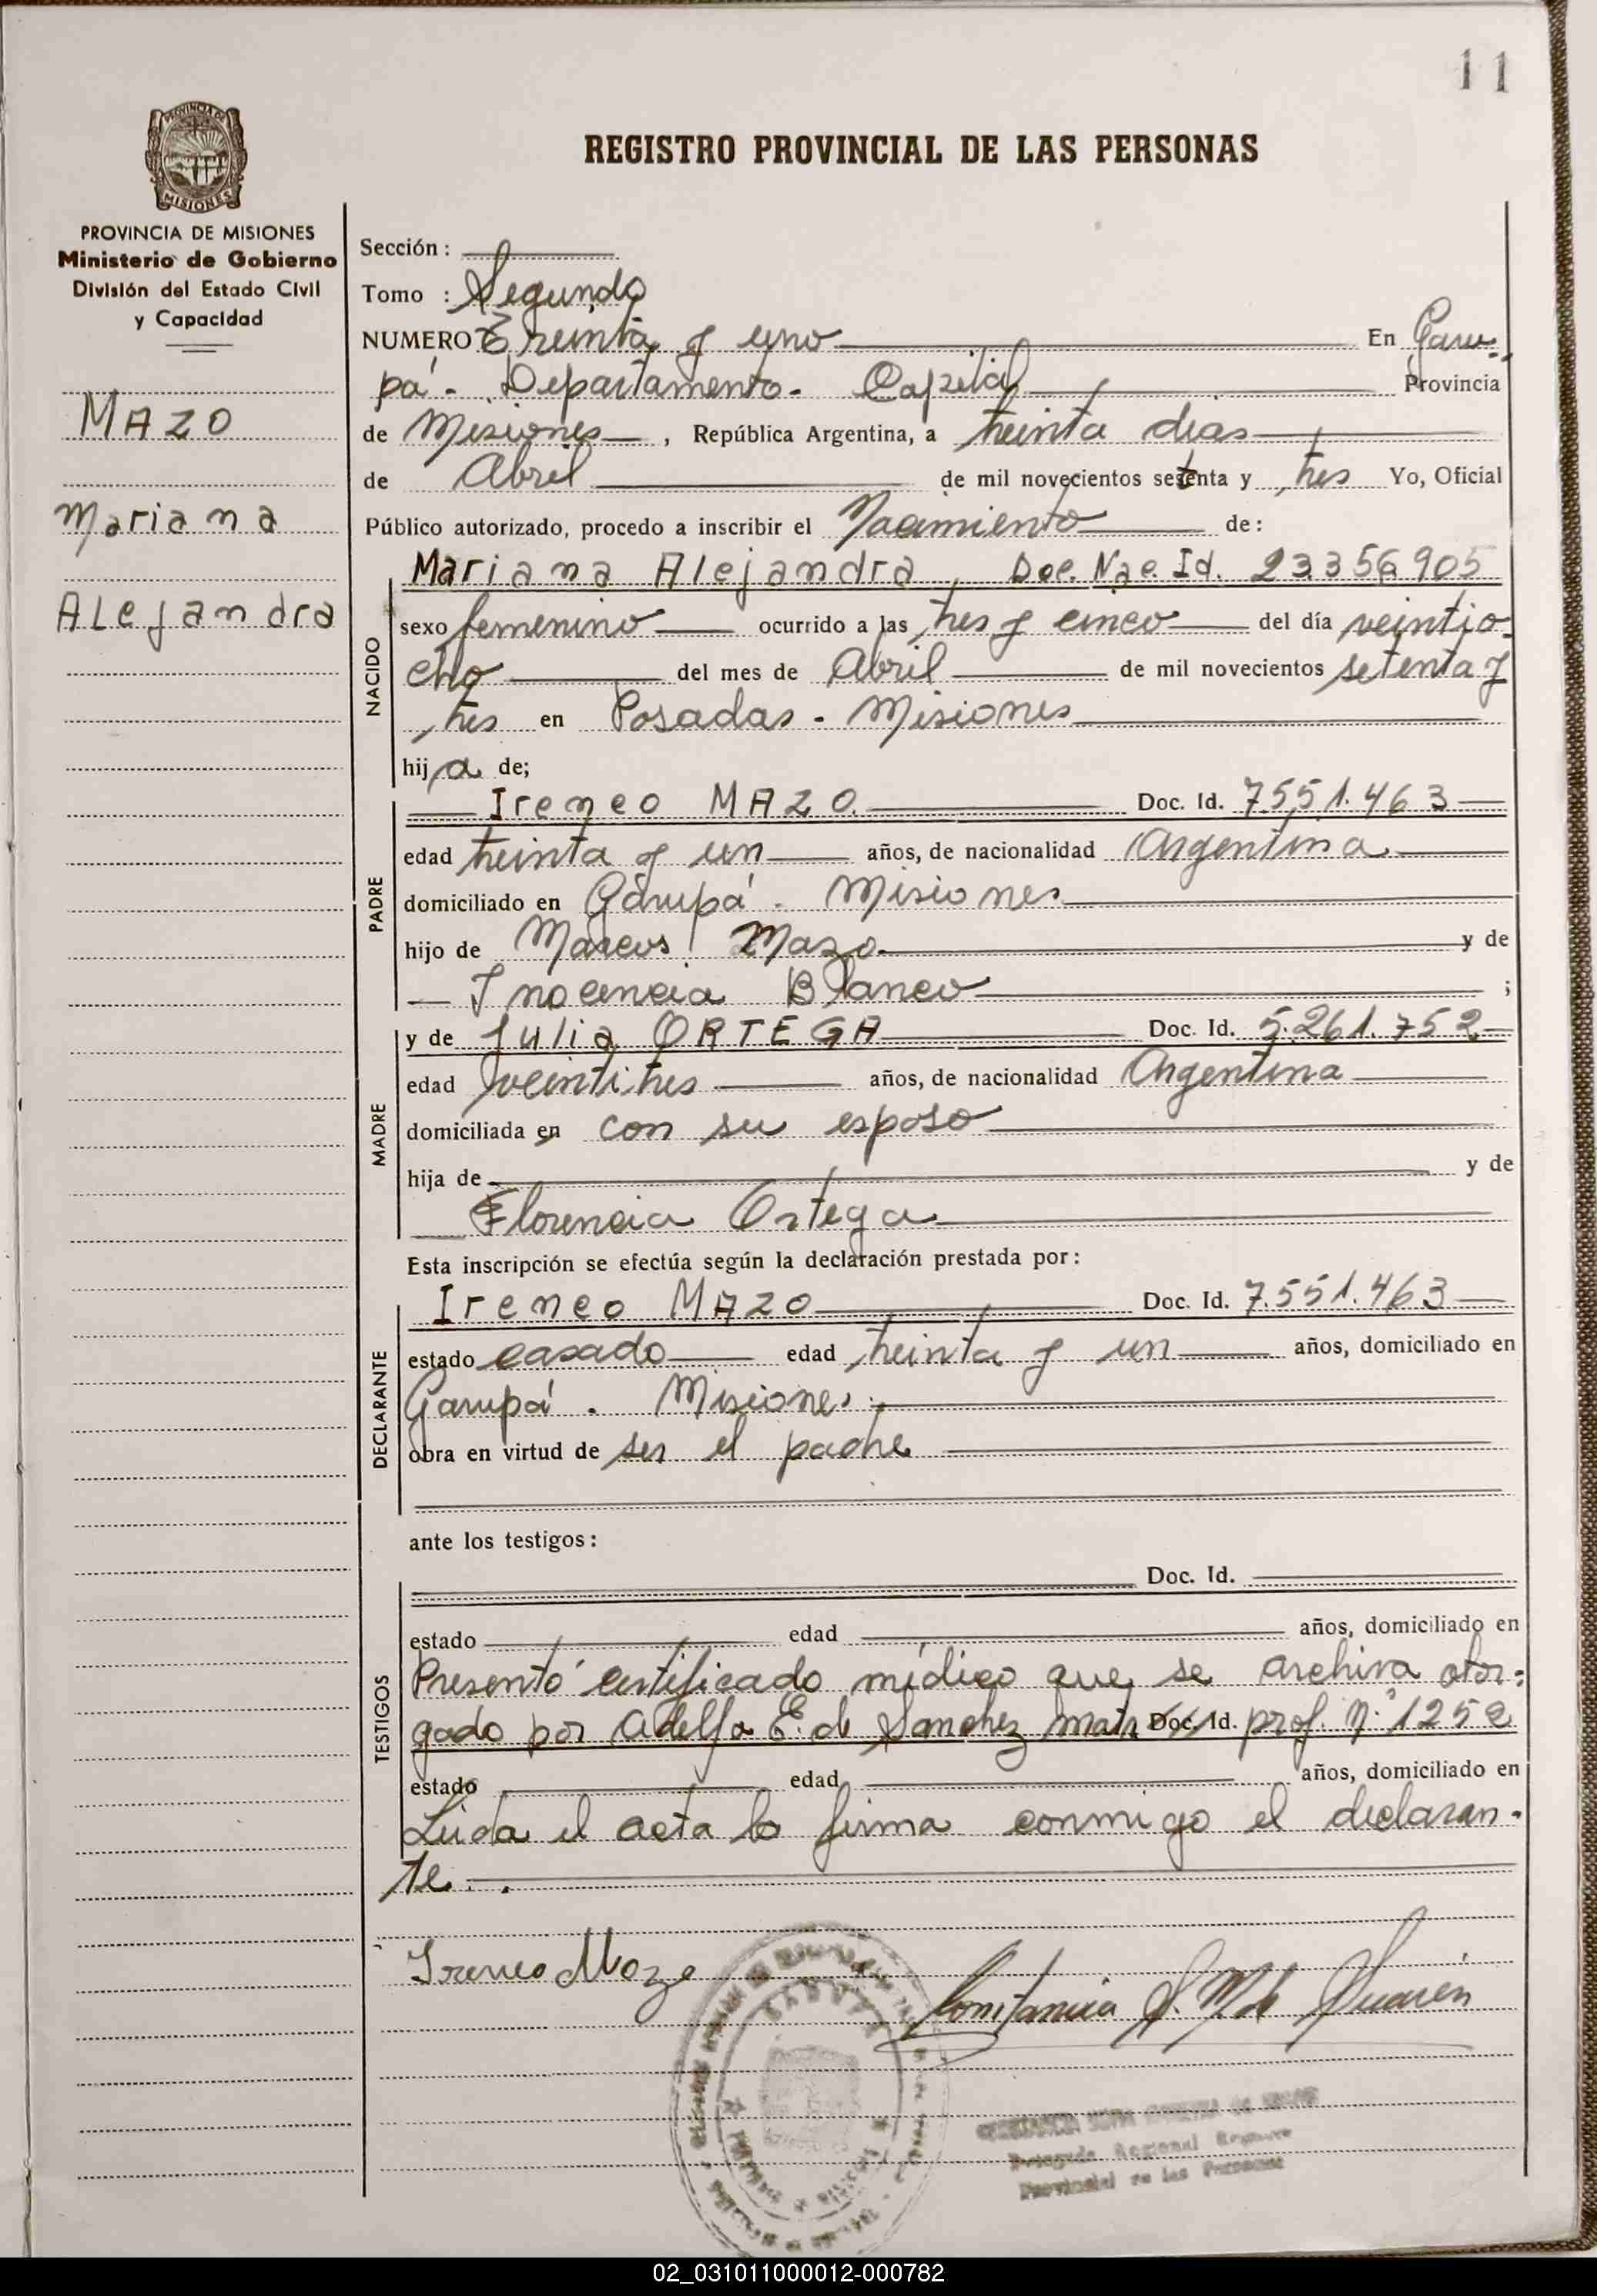 11
PROVINCIA DE
MISIONES
REGISTRO PROVINCIAL DE LAS PERSONAS
PROVINCIA DE MISIONES
Ministerio de Gobierno
División del Estado Civil
y Capacidad
MAZO
Mariana
ALejandra
Sección:
Tomo : Segundo
NUMERO Treinta y uno En Garu-
pá - Departamento - Capital Provincia
de Misiones, República Argentina, a treinta días
de Abril de mil novecientos setenta y tres Yo, Oficial
Público autorizado, procedo a inscribir el Nacimiento de:
NACIDO
Mariana Alejandra, Doc. Nac. Id. 23356905
sexo femenino ocurrido a las tres y cinco del día veintio-
cho del mes de Abril de mil novecientos setenta y
tres en Posadas - Misiones
hija de;
PADRE
Ireneo MAZO Doc. Id. 7.551.463
edad treinta y un años, de nacionalidad Argentina
domiciliado en Garupá - Misiones
hijo de Marcos Mazo y de
Inocencia Blanco ;
MADRE
y de Julia ORTEGA Doc. Id. 5.261.752
edad veintitres años, de nacionalidad Argentina
domiciliada en con su esposo
hija de y de
Florencia Ortega
Esta inscripción se efectúa según la declaración prestada por:
DECLARANTE
Ireneo MAZO Doc. Id. 7.551.463
estado casado edad treinta y un años, domiciliado en
Garupá - Misiones
obra en virtud de ser el padre
ante los testigos:
TESTIGOS
Doc. Id.
estado edad años, domiciliado en
Presentó certificado médico que se archiva otor-
gado por Adelfa E. de Sanchez Doc. Id. prof. N° 1252
estado edad años, domiciliado en
Leída el acta la firma conmigo el declaran-
te.
Ireneo Mazo
Constancia S. M. de
Delegada Regional
Provincial de las Personas
02_031011000012-000782